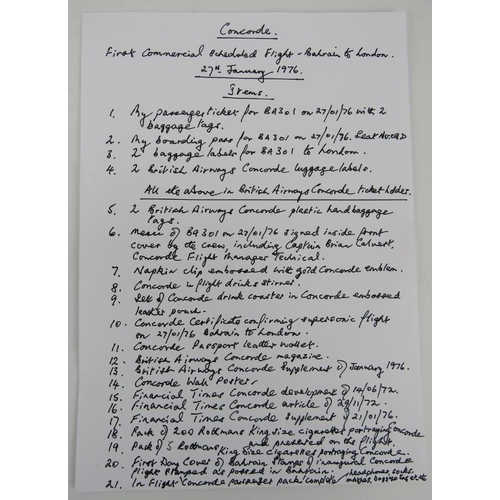 Concorde.
First Commercial Scheduled Flight - Bahrain to London.
27th January 1976.
Items.
1. My passenger ticket for BA301 on 27/01/76 with 2
baggage tags.
2. My boarding pass for BA301 on 27/01/76. Seat No:
3. 2 baggage labels for BA301 to London.
4. 2 British Airways Concorde luggage labels.
All the above in British Airways Concorde ticket holder.
5. 2 British Airways Concorde plastic hand baggage
tags.
6. Menu of BA301 on 27/01/76 signed inside front
cover by the crew, including Captain Brian Calvert,
Concorde Flight Manager Technical.
7. Napkin clip embossed with gold Concorde emblem.
8. Concorde in flight drinks stirrer.
9. Set of Concorde drink coaster in Concorde embossed
leather pouch.
10. Concorde Certificate confirming supersonic flight
on 27/01/76 Bahrain to London.
11. Concorde Passport leather wallet.
12. British Airways Concorde magazine.
13. British Airways Concorde Supplement of January 1976.
14. Concorde Wall Poster.
15. Financial Times Concorde development of 14/06/72.
16. Financial Times Concorde article of 29/11/72.
17. Financial Times Concorde Supplement of 21/01/76.
18. Pack of 200 Rothmans King Size cigarettes portraying Concorde
and presented on the flight.
19. Pack of 5 Rothmans King Size cigarettes portraying Concorde.
20. First Day Cover of Bahrain Stamps of inaugural Concorde
flight stamped as posted in Bahrain.
21. In Flight Concorde passenger pack/complete headphones, socks,